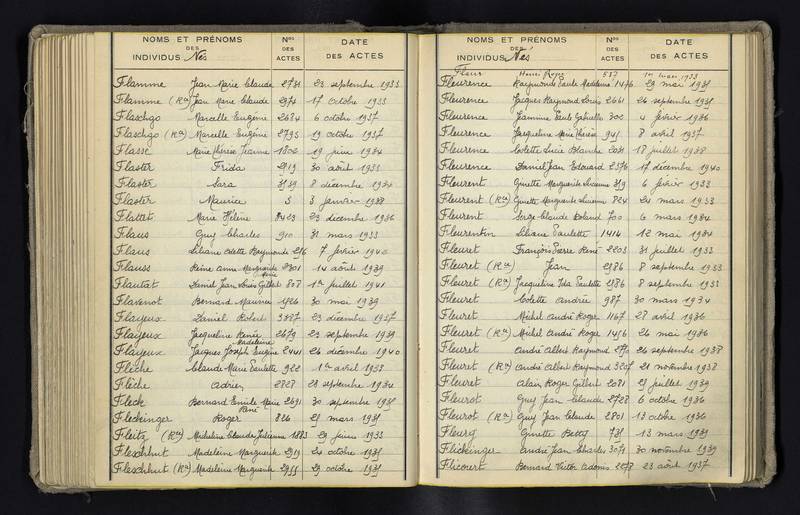 NOMS ET PRÉNOMS
DES
INDIVIDUS Nés
Nos
DES
ACTES
DATE
DES ACTES
Flamme Jean Marie Claude 2731 23 septembre 1933
Flamme (Rn) Jean Marie Claude 2974 17 octobre 1933
Flaschgo Marcelle Eugénie 2684 6 octobre 1937
Flaschgo (Rn) Marcelle Eugénie 2793 19 octobre 1937
Flasse Marie Thérèse Jeanne 1802 19 juin 1934
Flaster Frida 2919 30 août 1933
Flaster Sara 3139 8 décembre 1934
Flaster Maurice 3 3 janvier 1938
Flattet Marie Hélène 23 décembre 1936
Flaus Guy Charles 910 31 mars 1933
Flaus Liliane Odette Raymonde 296 7 février 1940
Flauss Reine Anne Marguerite 2301 14 août 1939
Flautat Daniel Jean Louis Gilbert 808 1er juillet 1941
Flavenot Bernard Maurice 1926 30 mai 1939
Flayeux Daniel Robert 3387 23 décembre 1937
Flayeux Jacqueline Renée Madeleine 2679 23 septembre 1939
Flayeux Jacques Joseph Eugène 2441 26 décembre 1940
Flèche Claude Marie Paulette 922 1er avril 1933
Flèche Adrien 2828 28 septembre 1934
Fleck Bernard Emile Marie René 2691 30 septembre 1935
Fleckinger Roger 826 25 mars 1935
Fleitz (Rn) Micheline Claude Julienne 1883 29 juin 1933
Fleschhut Madeleine Marguerite 2919 24 octobre 1935
Fleschhut (Rn) Madeleine Marguerite 2955 29 octobre 1935
NOMS ET PRÉNOMS
DES
INDIVIDUS Nés
Nos
DES
ACTES
DATE
DES ACTES
Fleur Henri Roger 587 1er mars 1933
Fleurence Raymonde Paule Madeleine 1476 29 mai 1935
Fleurence Jacques Raymond Louis 2661 26 septembre 1935
Fleurence Jeannine Paule Gabrielle 300 4 février 1936
Fleurence Jacqueline Marie Thérèse 945 8 avril 1937
Fleurence Colette Lucie Blanche 2031 18 juillet 1938
Fleurence Daniel Jean Edouard 2376 17 décembre 1940
Fleurent Ginette Marguerite Suzanne 319 6 février 1933
Fleurent (Rn) Ginette Marguerite Suzanne 824 24 mars 1933
Fleurent Serge Claude Roland 700 6 mars 1934
Fleurentin Liliane Paulette 1414 12 mai 1934
Fleuret François Pierre René 2203 31 juillet 1933
Fleuret (Rn) Jean 2986 8 septembre 1933
Fleuret (Rn) Jacqueline Ida Paulette 2986 8 septembre 1933
Fleuret Colette Andrée 987 30 mars 1934
Fleuret Michel André Roger 1167 28 avril 1936
Fleuret (Rn) Michel André Roger 1456 26 mai 1936
Fleuret André Albert Raymond 26 septembre 1938
Fleuret (Rn) André Albert Raymond 3205 21 novembre 1938
Fleuret Alain Roger Gilbert 2081 25 juillet 1939
Fleurot Guy Jean Claude 2728 6 octobre 1936
Fleurot (Rn) Guy Jean Claude 2801 13 octobre 1936
Fleury Ginette Betty 735 13 mars 1939
Flickinger André Jean Charles 3071 30 novembre 1939
Flicourt Bernard Victor Adonis 2278 23 août 1937